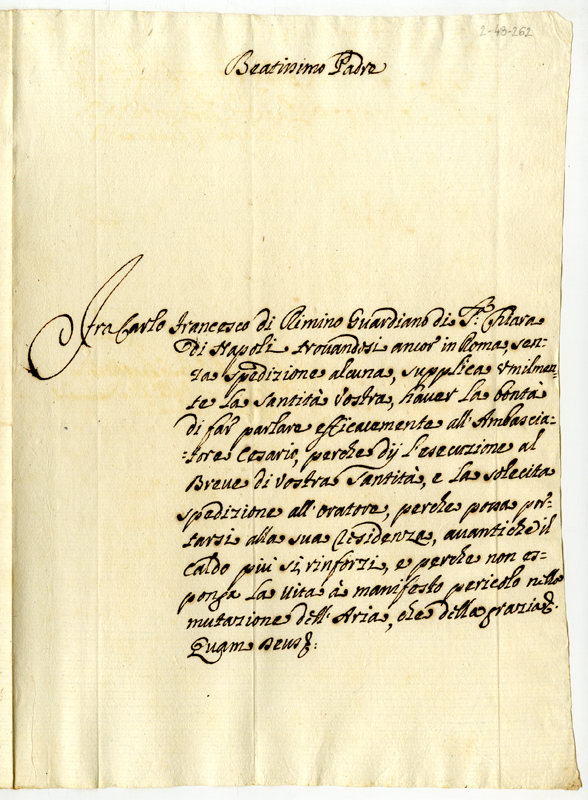 2-48-262
Beatissimo Padre
Fra Carlo Francesco di Rimino Guardiano di S.ta Chiara
Di Napoli trouandosi ancor' in Roma, sen-
za spedizione alcuna, supplica vmilmen-
te La Santità Vostra, hauer La bontà
di far parlare efficacemente all' Ambascia-
tore Cesario, perche dij l'esecuzione al
Breve di Vostra Santità, e La solecita
spedizione all' oratore, perche possa por-
tarsi alla sua Residenza, auantiche il
Caldo più si rinforzi, e perche non es-
ponga La Vita à manifesto pericolo nella
mutazione dell' Aria, che della grazia &.
Quam Deus &: